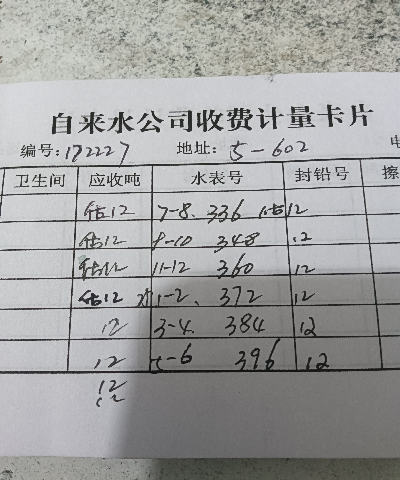 自来水公司收费计量卡片
编号: 172227 地址: 5-602 电
卫生间 应收吨 水表号 封铅号 擦
估12 7-8. 336 估12
估12 9-10 348 12
估12 11-12 360 12
估12 1-2. 372 12
12 3-4. 384 12
12 5-6 396 12
12
12